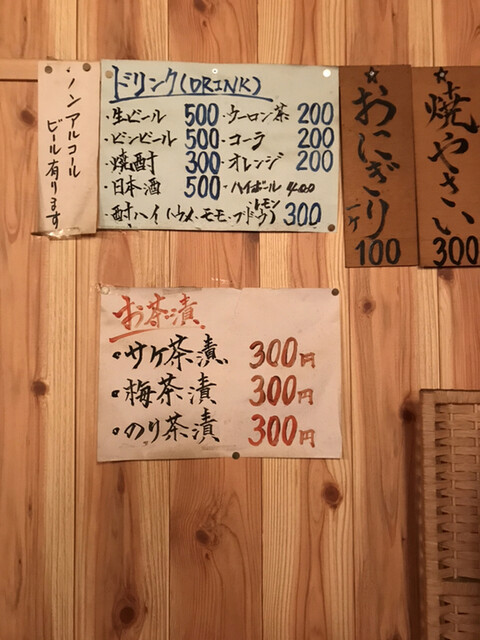 ノンアルコール
ビール有ります
ドリンク(DRINK)
・生ビール 500 ・ウーロン茶 200
・ビンビール 500 ・コーラ 200
・焼酎 300 ・オレンジ 200
・日本酒 500 ・ハイボール 400
・酎ハイ(ウメ・モモ・ブドウ・レモン) 300
☆おにぎり
一ケ
100
☆焼やさい
300
お茶漬
・サケ茶漬 300円
・梅茶漬 300円
・のり茶漬 300円